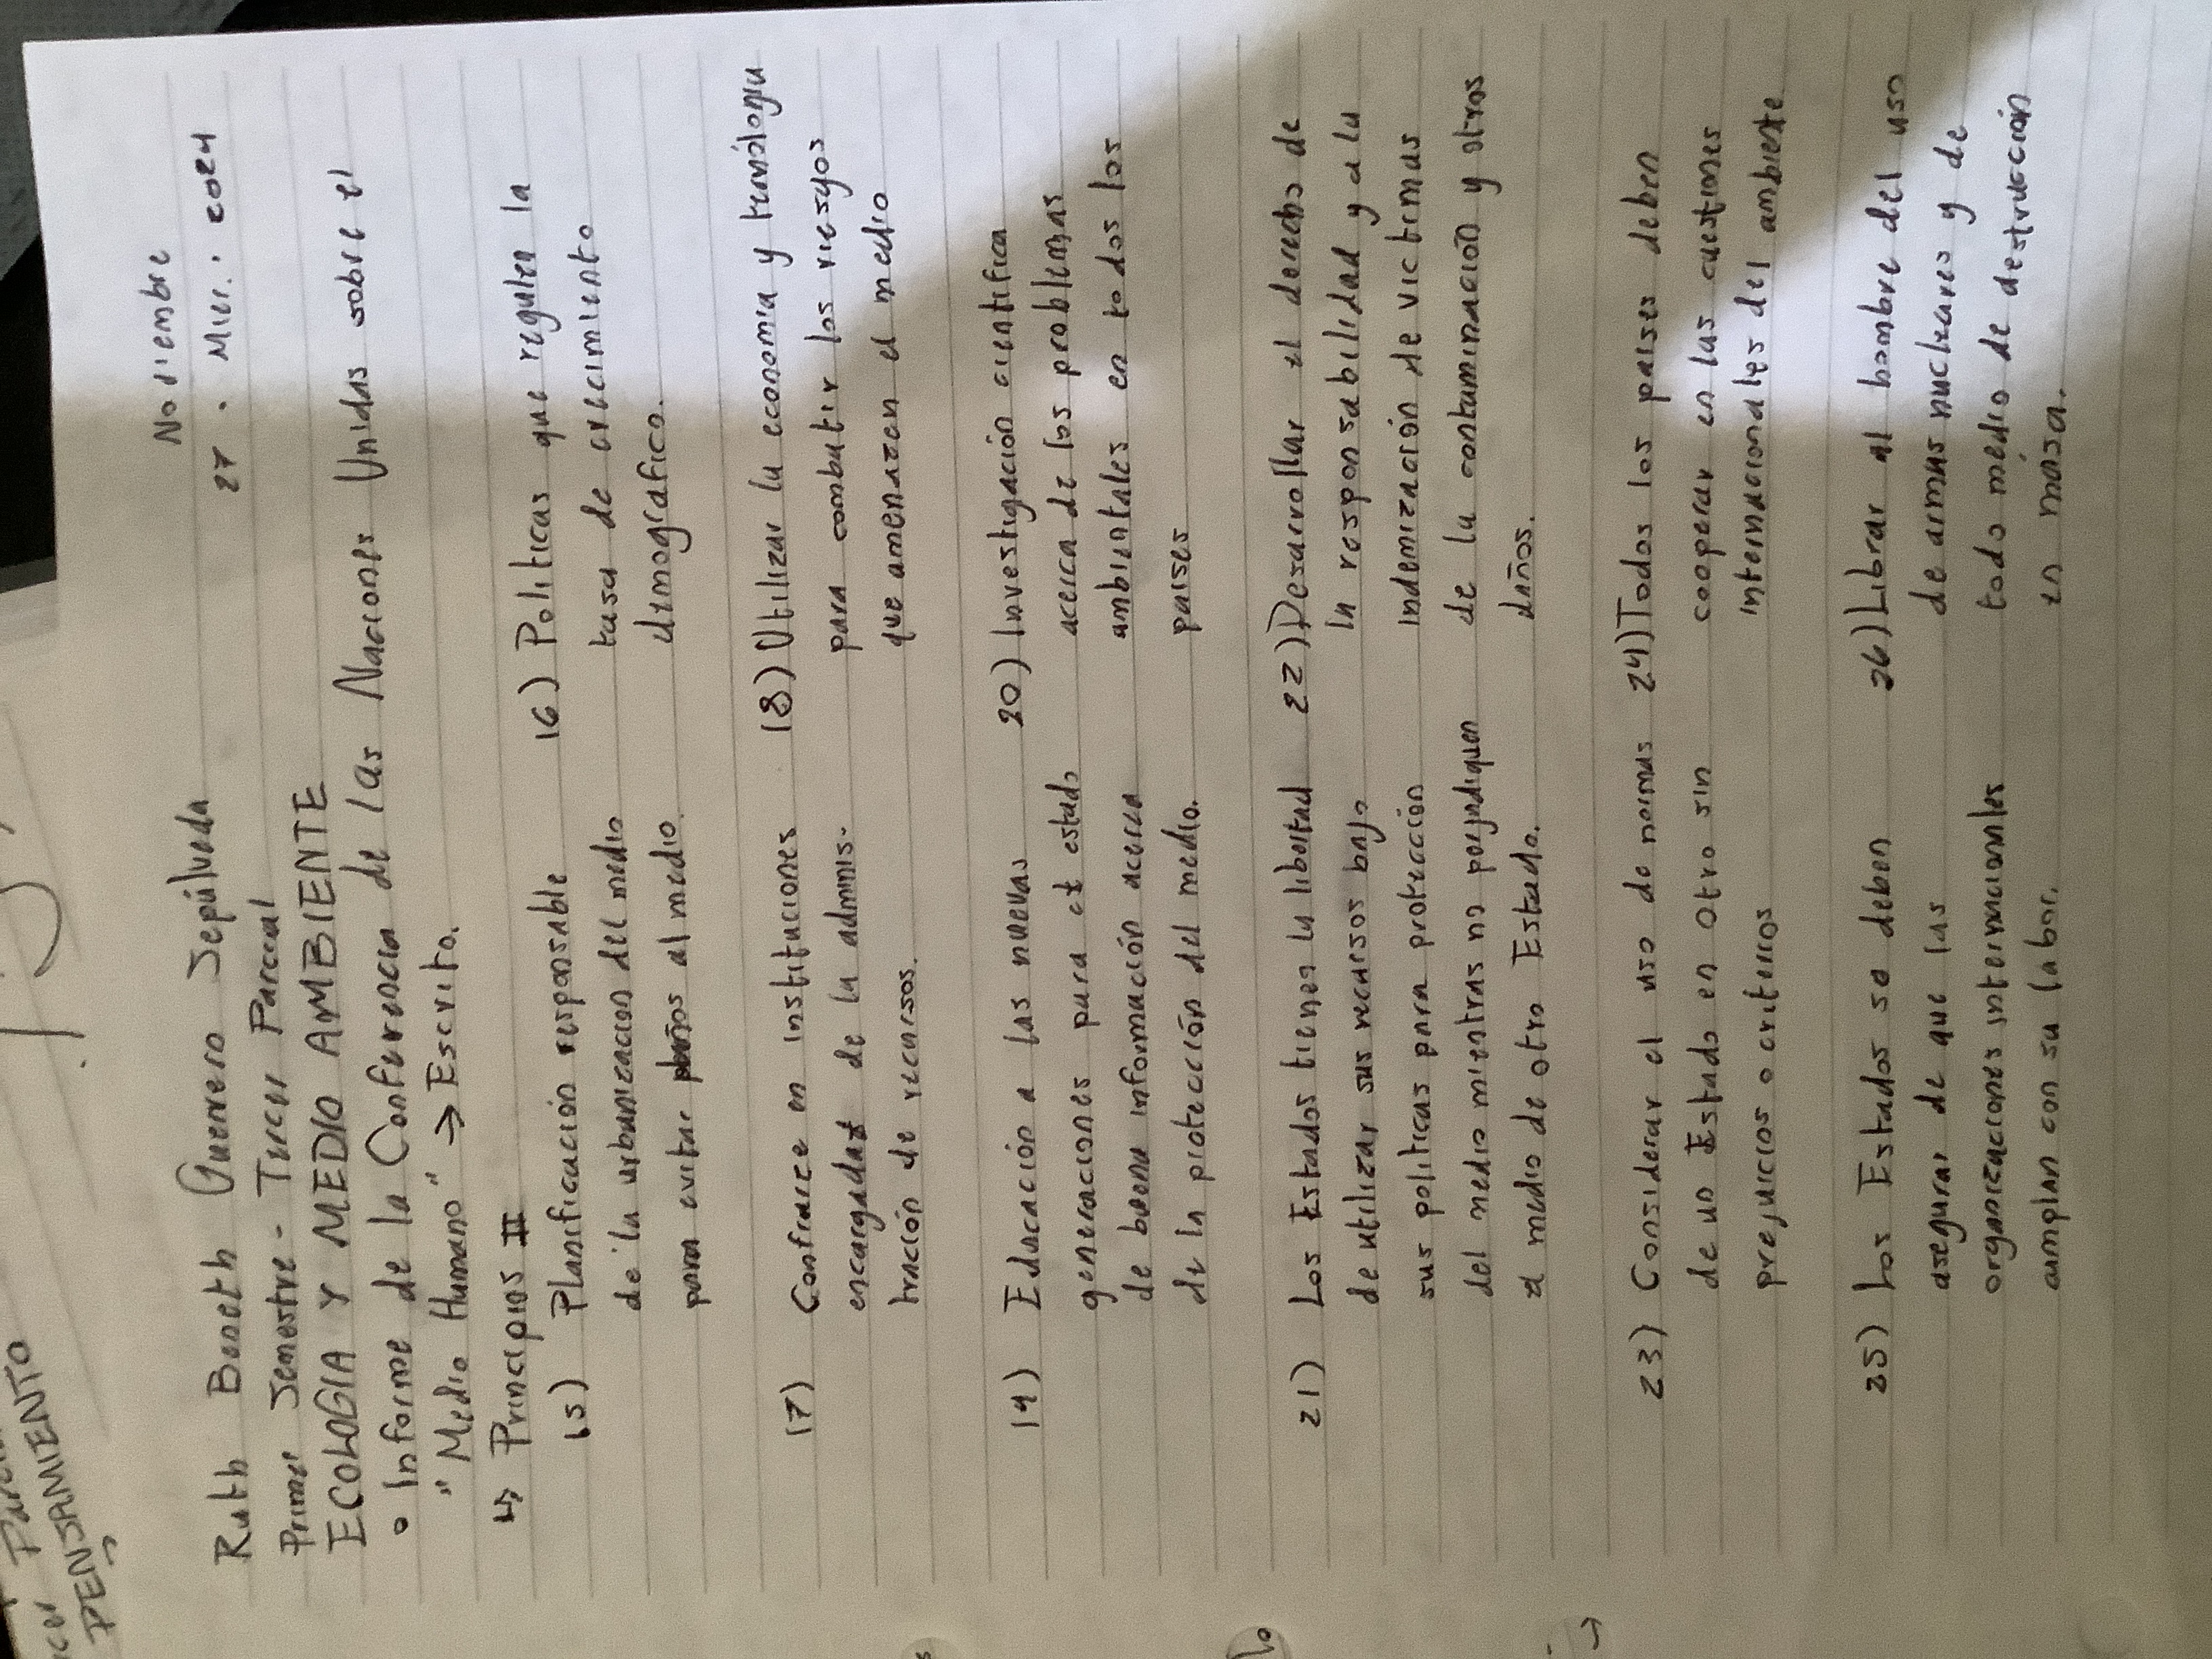 Noviembre
27 . Mier. . 2024
Ruth Beneth Guerrero Sepúlveda
Primer Semestre - Tercer Parcial
ECOLOGIA Y MEDIO AMBIENTE
• Informe de la Conferencia de las Naciones Unidas sobre el
"Medio Humano" → Escrito.
↳ Principios II
15) Planificación responsable
de la urbanización del medio
para evitar daños al medio.
16) Politicas que regulen la
tasa de crecimiento
demografico.
17) Confiarce en instituciones
encargadas de la adminis-
tración de recursos.
18) Utilizar la economia y tecnólogia
para combatir los riesgos
que amenazen el medio
19) Educación a las nuevas
generaciones para el estado
de buena información acerca
de la protección del medio.
20) Investigación cientifica
acerca de los problemas
ambientales en todos los
paises
21) Los Estados tienen la libertad
de utilizar sus recursos bajo
sus politicas para protección
del medio mientras no perjudiquen
el medio de otro Estado.
22) Desarrollar el derecho de
la responsabilidad y a la
indemización de victimas
de la contaminación y otros
daños.
23) Considerar el uso de normas
de un Estado en otro sin
prejuicios o criterios
24) Todos los paises deben
cooperar en las cuestiones
internacionales del ambiente
25) Los Estados se deben
asegurar de que las
organizaciones internacionales
cumplan con su labor.
26) Librar al hombre del uso
de armas nucleares y de
todo medio de destrucción
en masa.
PENSAMIENTO